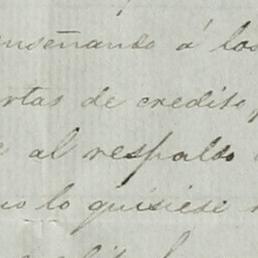 enseñando á los
rtas de credito,
e al respaldo
no lo quisiese